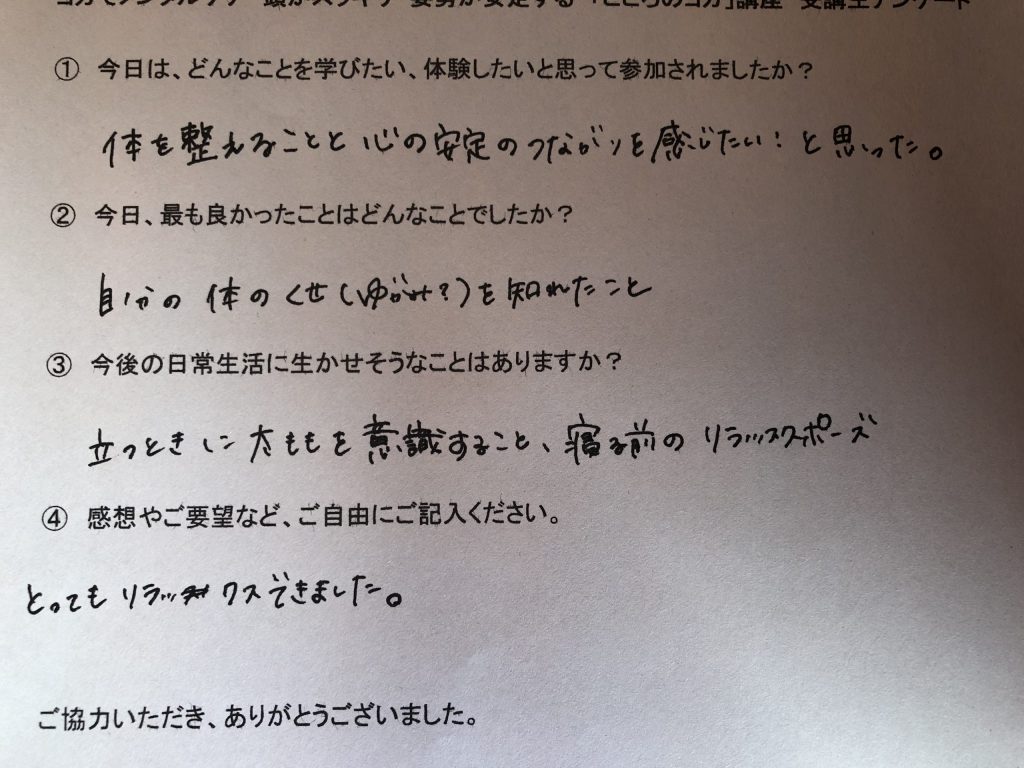 ヨガでメンタルケア 頭がスッキリ 姿勢が安定する 「こころのヨガ」講座 受講生アンケート
① 今日は、どんなことを学びたい、体験したいと思って参加されましたか？
体を整えることと 心の安定のつながりを感じたい！と思った。
② 今日、最も良かったことはどんなことでしたか？
自分の 体のくせ（ゆがみ？）を知れたこと
③ 今後の日常生活に生かせそうなことはありますか？
立つときに太ももを意識すること、寝る前のリラックスポーズ
④ 感想やご要望など、ご自由にご記入ください。
とってもリラックスできました。
ご協力いただき、ありがとうございました。